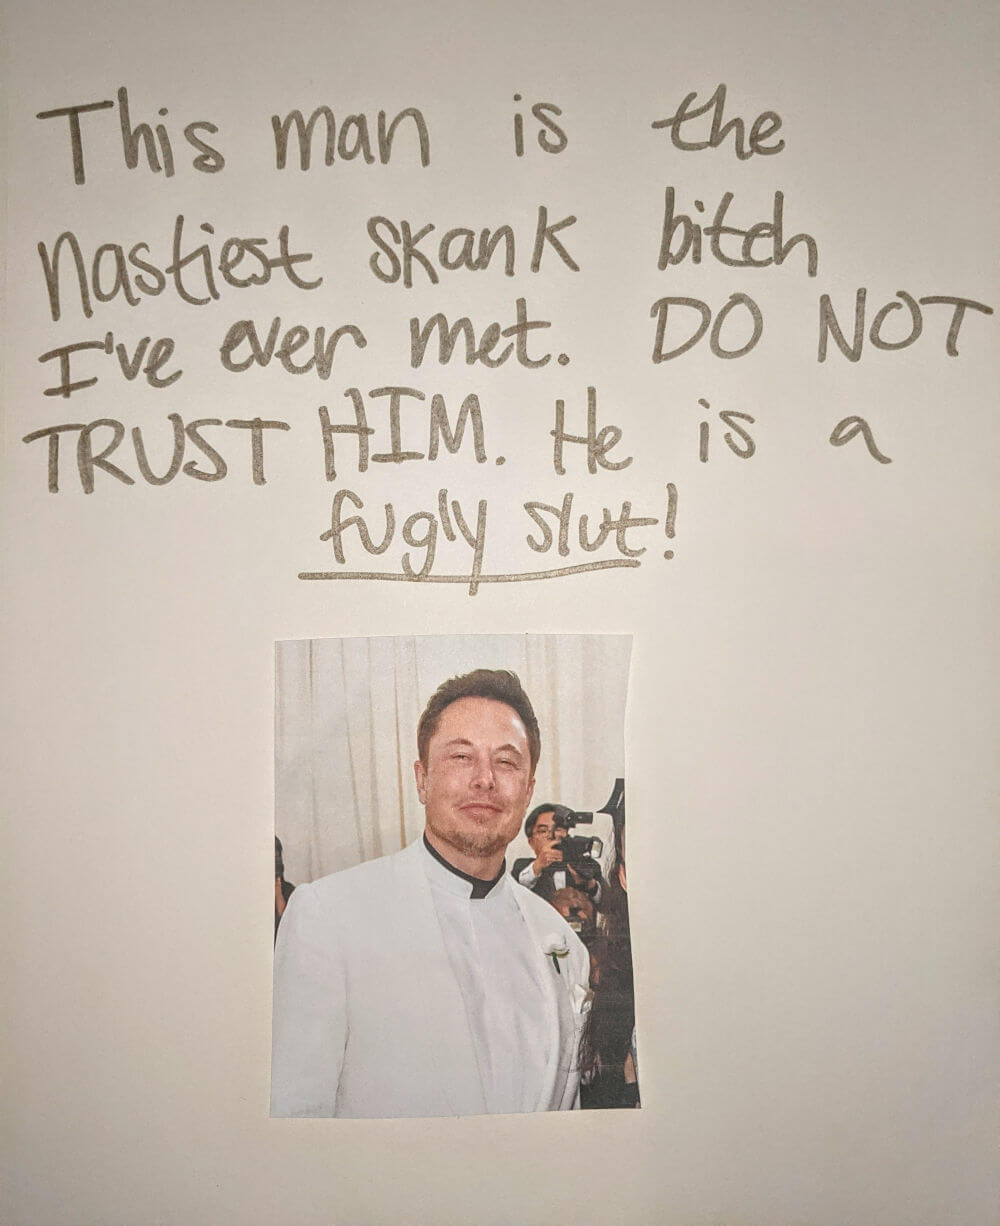 This man is the
nastiest skank bitch
I've ever met. DO NOT
TRUST HIM. He is a
fugly slut!